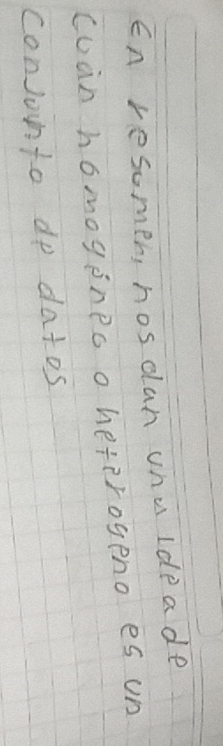 En resumen, nos dan una idea de
cuán homogéneo o heterogeno es un
conjunto de datos